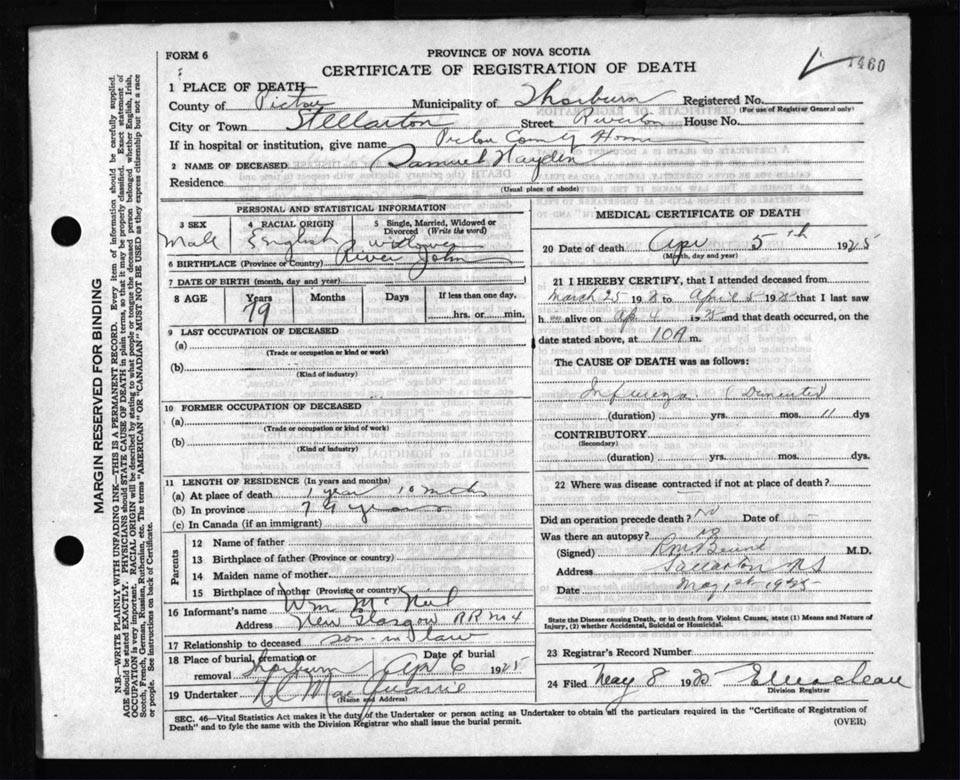 FORM 6
PROVINCE OF NOVA SCOTIA
CERTIFICATE OF REGISTRATION OF DEATH
1460
1 PLACE OF DEATH
County of Pictou Municipality of Thorburn Registered No.
(For use of Registrar General only)
City or Town Stellarton Street Riverton House No.
If in hospital or institution, give name Pictou County Home
2 NAME OF DECEASED Samuel Hayden
Residence
(Usual place of abode)
PERSONAL AND STATISTICAL INFORMATION
3 SEX Male
4 RACIAL ORIGIN English
5 Single, Married, Widowed or Divorced (Write the word) widower
6 BIRTHPLACE (Province or Country) River John
7 DATE OF BIRTH (month, day and year)
8 AGE Years 79 Months Days If less than one day, hrs. or min.
9 LAST OCCUPATION OF DECEASED
(a)
(Trade or occupation or kind or work)
(b)
(Kind of industry)
10 FORMER OCCUPATION OF DECEASED
(a)
(Trade or occupation or kind of work)
(b)
(Kind of industry)
11 LENGTH OF RESIDENCE (In years and months)
(a) At place of death 1 year 10 mths
(b) In province 79 years
(c) In Canada (if an immigrant)
Parents
12 Name of father
13 Birthplace of father (Province or country)
14 Maiden name of mother
15 Birthplace of mother (Province or country)
16 Informant's name Wm McNeil
Address New Glasgow RR no 4
17 Relationship to deceased son-in-law
18 Place of burial, cremation or removal Thorburn Date of burial Apr 6 1925
19 Undertaker MacQuarrie
(Name and Address)
MEDICAL CERTIFICATE OF DEATH
20 Date of death Apr 5th 1925
(Month, day and year)
21 I HEREBY CERTIFY, that I attended deceased from
March 25 192 to April 5 192 that I last saw
h alive on Ap 4 192 and that death occurred, on
date stated above, at 10 A m.
The CAUSE OF DEATH was as follows:
Influenza (Demented)
(duration) yrs. mos. 11 dys
CONTRIBUTORY.
(Secondary)
(duration) yrs. mos. dys.
22 Where was disease contracted if not at place of death?
Did an operation precede death? No Date of
Was there an autopsy? no
(Signed) M.D.
Address Stellarton NS
Date May 1st 1925
State the Disease causing Death, or in death from Violent Causes, state (1) Means and Nature of
Injury, (2) whether Accidental, Suicidal or Homicidal.
23 Registrar's Record Number
24 Filed May 8 1925
Division Registrar
SEC. 46—Vital Statistics Act makes it the duty of the Undertaker or person acting as Undertaker to obtain all the particulars required in the "Certificate of Registration of
Death" and to fyle the same with the Division Registrar who shall issue the burial permit.
(OVER)
MARGIN RESERVED FOR BINDING
N.B—WRITE PLAINLY WITH UNFADING INK—THIS IS A PERMANENT RECORD. Every item of information should be carefully supplied.
AGE should be stated EXACTLY. PHYSICIANS should STATE CAUSE OF DEATH in plain terms, so that it may be properly classified. Exact statement of
OCCUPATION is very important. RACIAL ORIGIN will be described by stating to what people or tongue the deceased person belonged whether English, Irish,
Scotch, French, German, Russian, Ruthenian, etc. The terms "AMERICAN" OR "CANADIAN" MUST NOT BE USED as they express citizenship but not a race
or people. See instructions on back of Certificate.